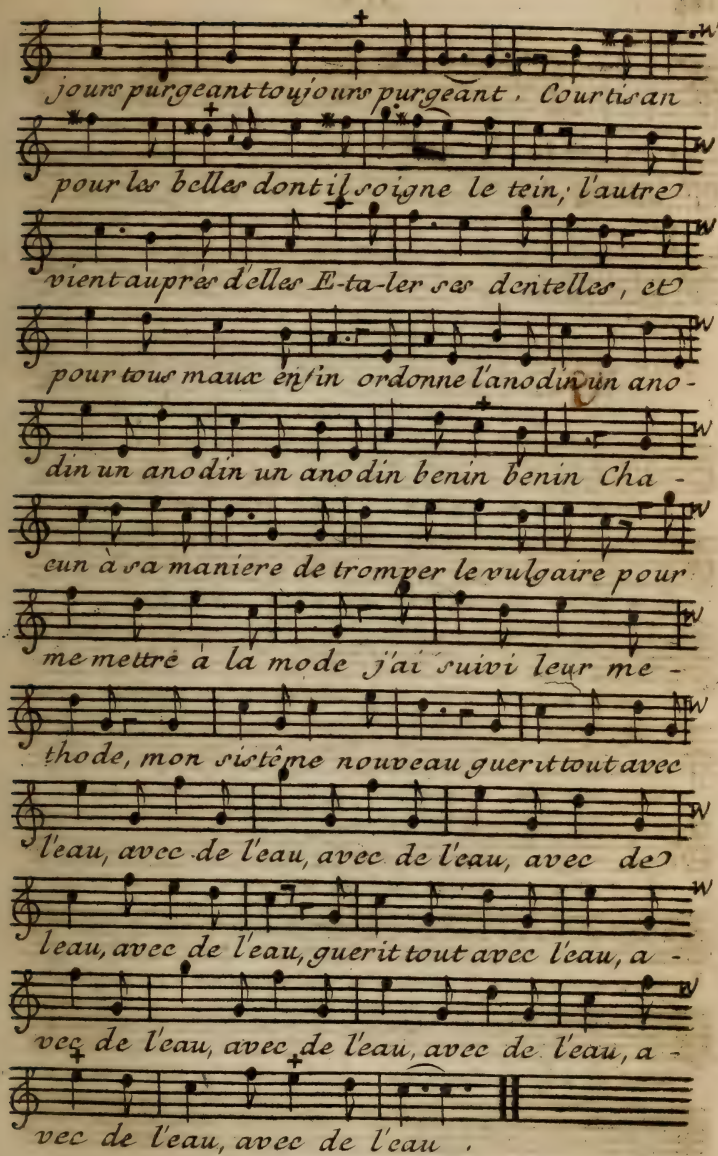 jours purgeant toujours purgeant. Courtisan
pour les belles dont il soigne le tein; l'autre
vient auprés d'elles E-ta-ler ses dentelles, et
pour tous maux enfin ordonne l'anodin un ano-
din un anodin un anodin benin benin Cha-
cun à sa maniere de tromper le vulgaire pour
me mettre à la mode j'ai suivi leur me-
thode, mon sistême nouveau guerit tout avec
l'eau, avec de l'eau, avec de l'eau, avec de
leau, avec de l'eau, guerit tout avec l'eau, a-
vec de l'eau, avec de l'eau, avec de l'eau, a-
vec de l'eau, avec de l'eau.